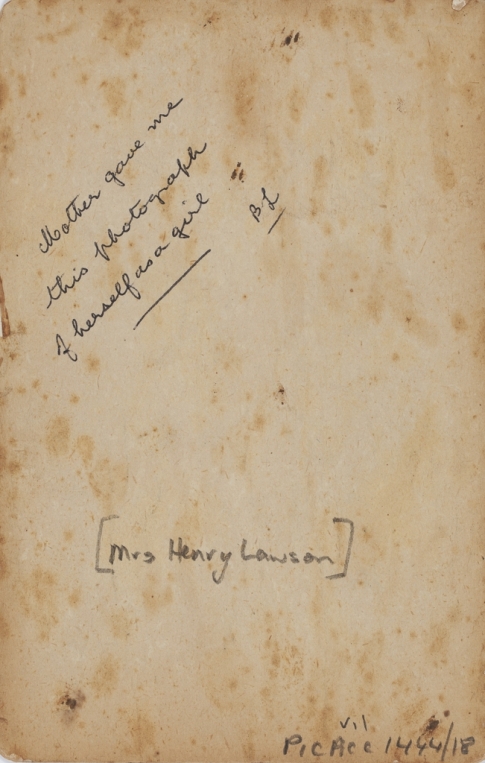 Mother gave me
this photograph
of herself as a girl
BL
[Mrs Henry Lawson]
vil
PicAcc 1444/18